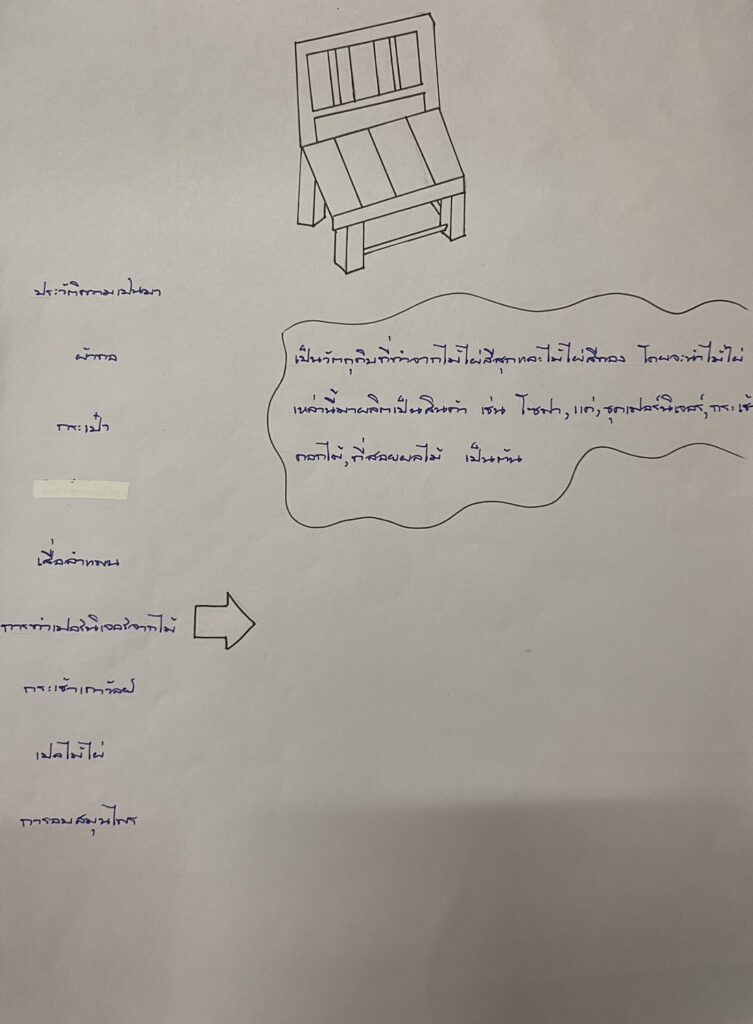 ประวัติความเป็นมา
ผ้าทอ
เป็นวัตถุดิบที่ทำจากไม้ไผ่สีสุกและไม้ไผ่สีทอง โดยจะนำไม้ไผ่
เหล่านี้มาผลิตเป็นสินค้า เช่น โซฟา, แคร่, ชุดเฟอร์นิเจอร์, กระเช้า
ดอกไม้, ที่สอยผลไม้ เป็นต้น
กระเป๋า
เสื่อลำแพน
การทำเฟอร์นิเจอร์จากไม้
กระเช้าเถาวัลย์
เปลไม้ไผ่
การอบสมุนไพร